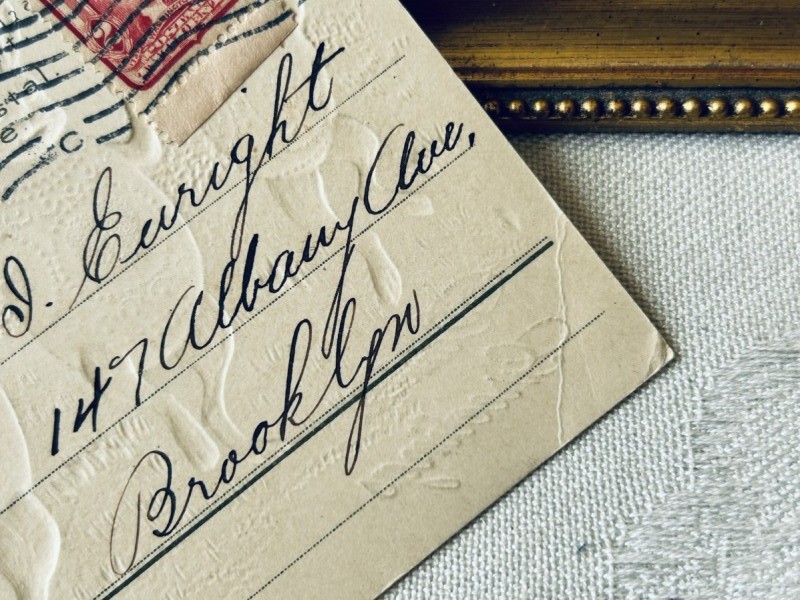 2
J. Enright
147 Albany Ave,
Brooklyn